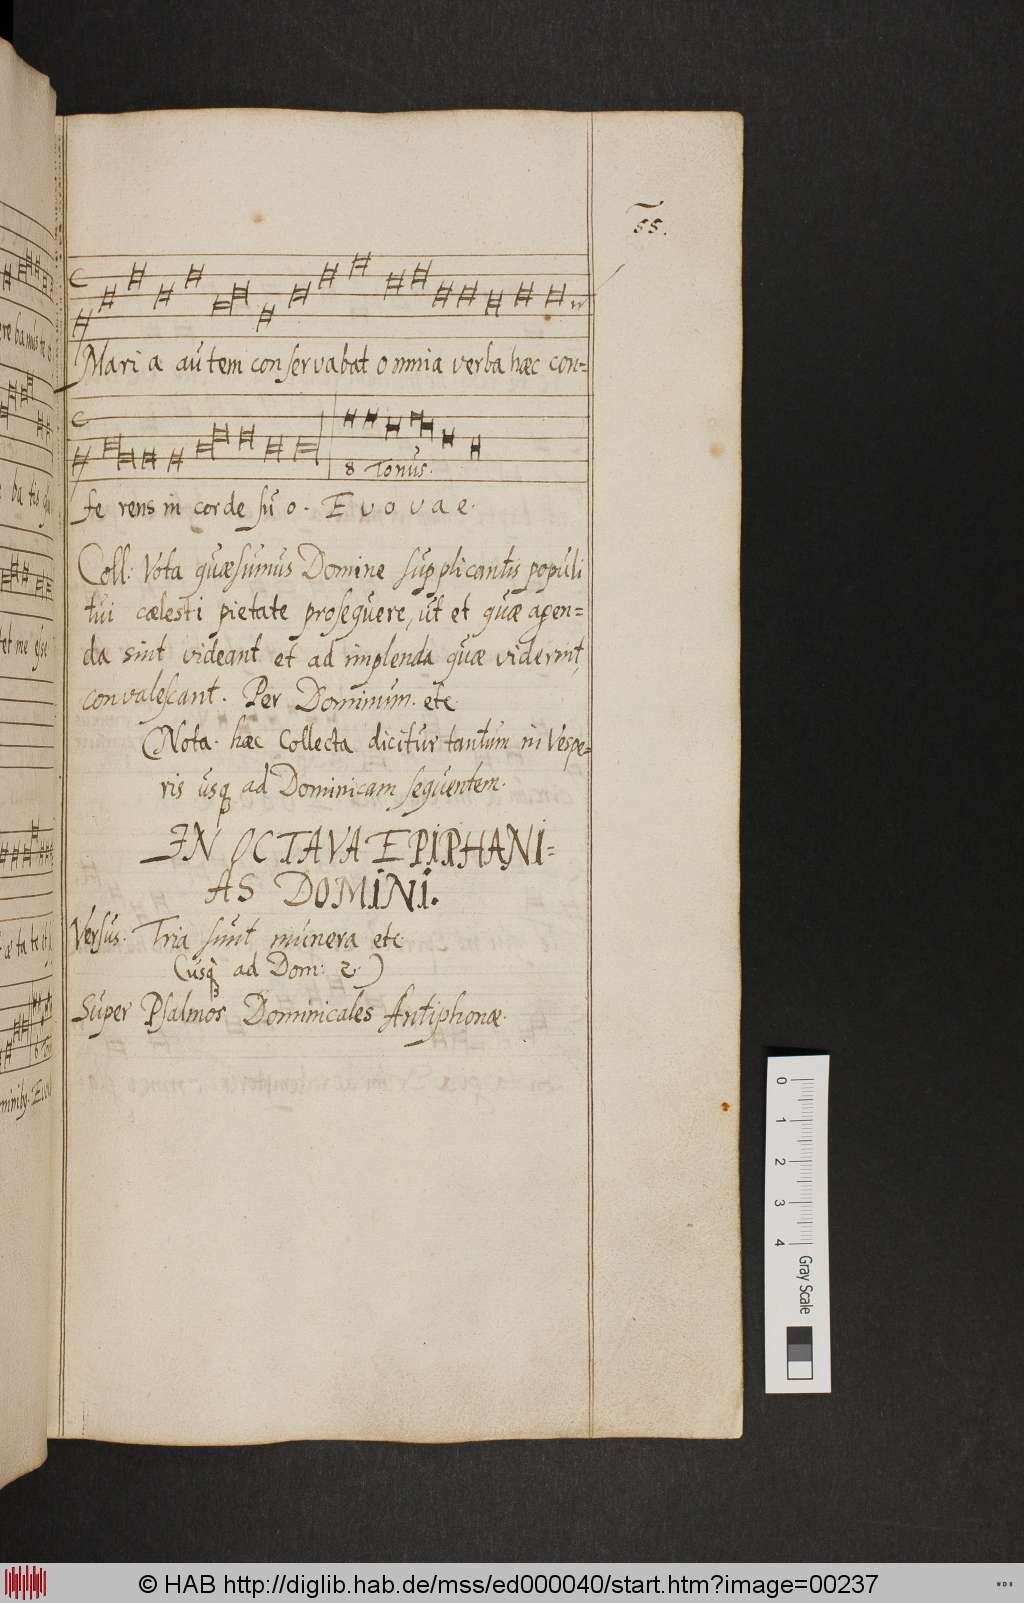 55.
Maria autem conservabat omnia verba hæc con=
8 Tonus.
ferens in corde suo. Evovae.
Coll: Vota quæsumus Domine supplicantis populi
tui cælesti pietate prosequere, ut et quæ agen=
da sint videant et ad implenda quæ viderint,
convalescant. Per Dominum. etc
(Nota. hæc Collecta dicitur tantum in Vespe=
ris usq ad Dominicam sequentem.
IN OCTAVA EPIPHANI=
AS DOMINI.
Versus. Tria sunt munera etc
(usq ad Dom: 2.)
Super Psalmos Dominicales Antiphonæ.
0 1 2 3 4 Gray Scale
© HAB http://diglib.hab.de/mss/ed000040/start.htm?image=00237